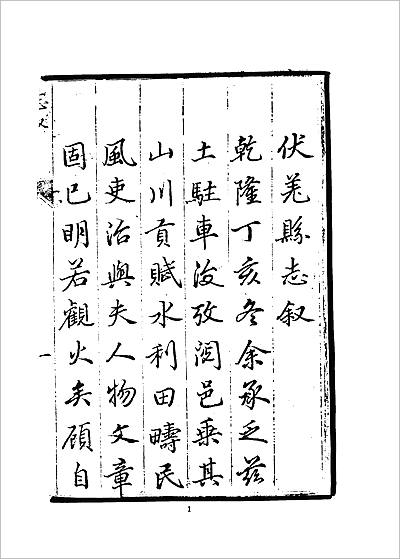 伏羌縣志叙
乾隆丁亥冬余承乏茲
土駐車後攷閱邑乘其
山川貢賦水利田疇民
風吏治與夫人物文章
固已明若觀火矣顧自
一
1